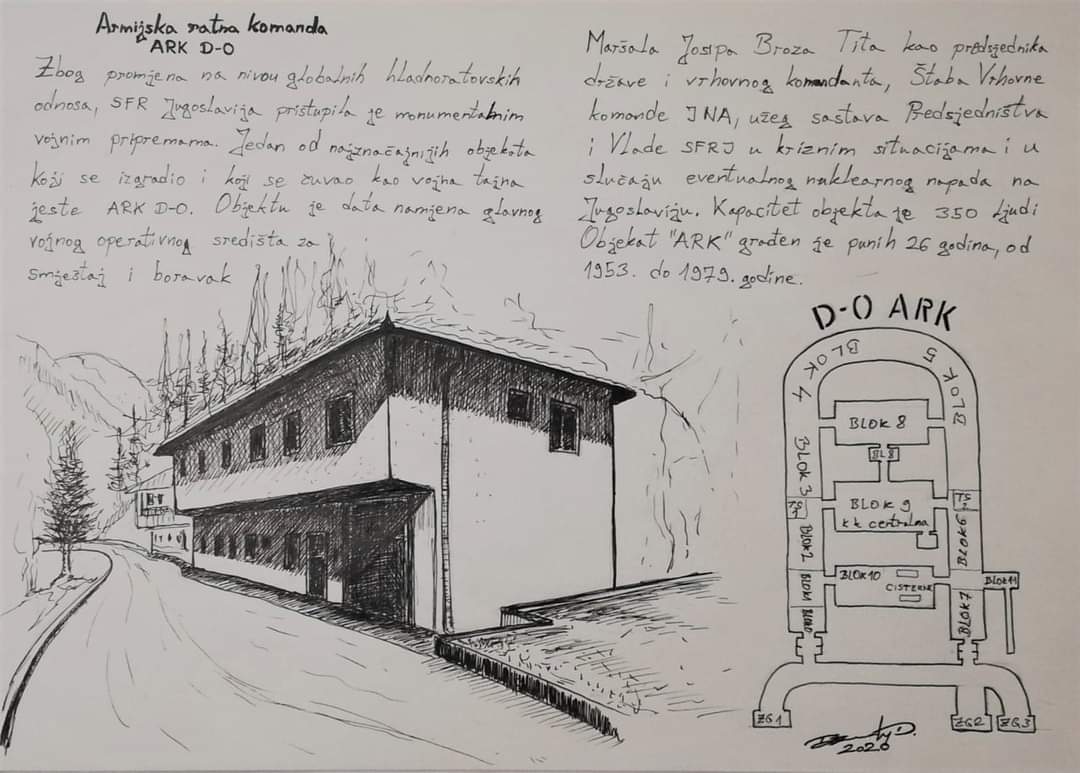 Armijska ratna komanda
ARK D-0
Zbog promjena na nivou globalnih hladnoratovskih
odnosa, SFR Jugoslavija pristupila je monumentalnim
vojnim pripremama. Jedan od najznačajnijih objekata
koji se izgradio i koji se čuvao kao vojna tajna
jeste ARK D-0. Objektu je data namjena glavnog
vojnog operativnog središta za
smještaj i boravak
Maršala Josipa Broza Tita kao predsjednika
države i vrhovnog komandanta, Štaba Vrhovne
komande JNA, užeg sastava Predsjedništva
i Vlade SFRJ u kriznim situacijama i u
slučaju eventualnog nuklearnog napada na
Jugoslaviju. Kapacitet objekta je 350 ljudi
Objekat "ARK" građen je punih 26 godina, od
1953. do 1979. godine.
D-0 ARK
BLOK 4
BLOK 5
BLOK 8
BLOK 3
BLOK 9
kk centralna
BLOK 6
BLOK 2
BLOK 10
CISTERNE
BLOK 11
BLOK 1
BLOK 7
ZG1
ZG2
ZG3
2020